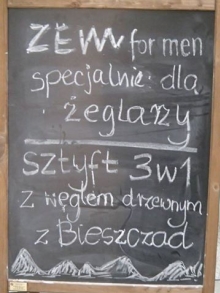 ZEW for men
specjalnie dla
żeglarzy
SZTYFT 3w1
z węglem drzewnym
z Bieszczad